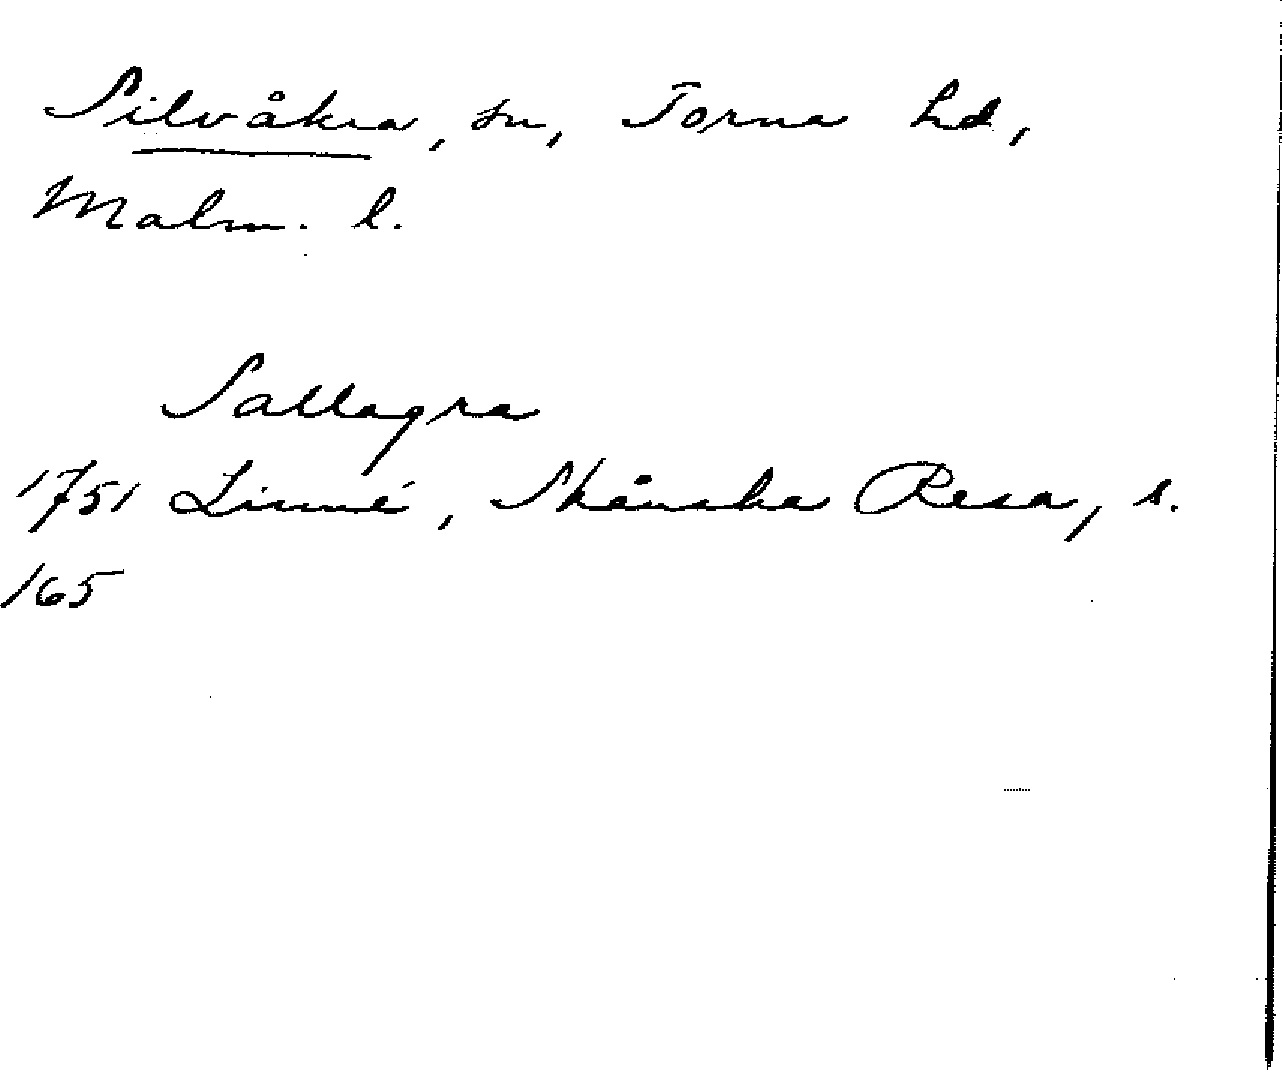 Silvåkra, sn, Torna hd,
Malm. l.
Sallagra
1751 Linné, Skånska Resa, s.
165